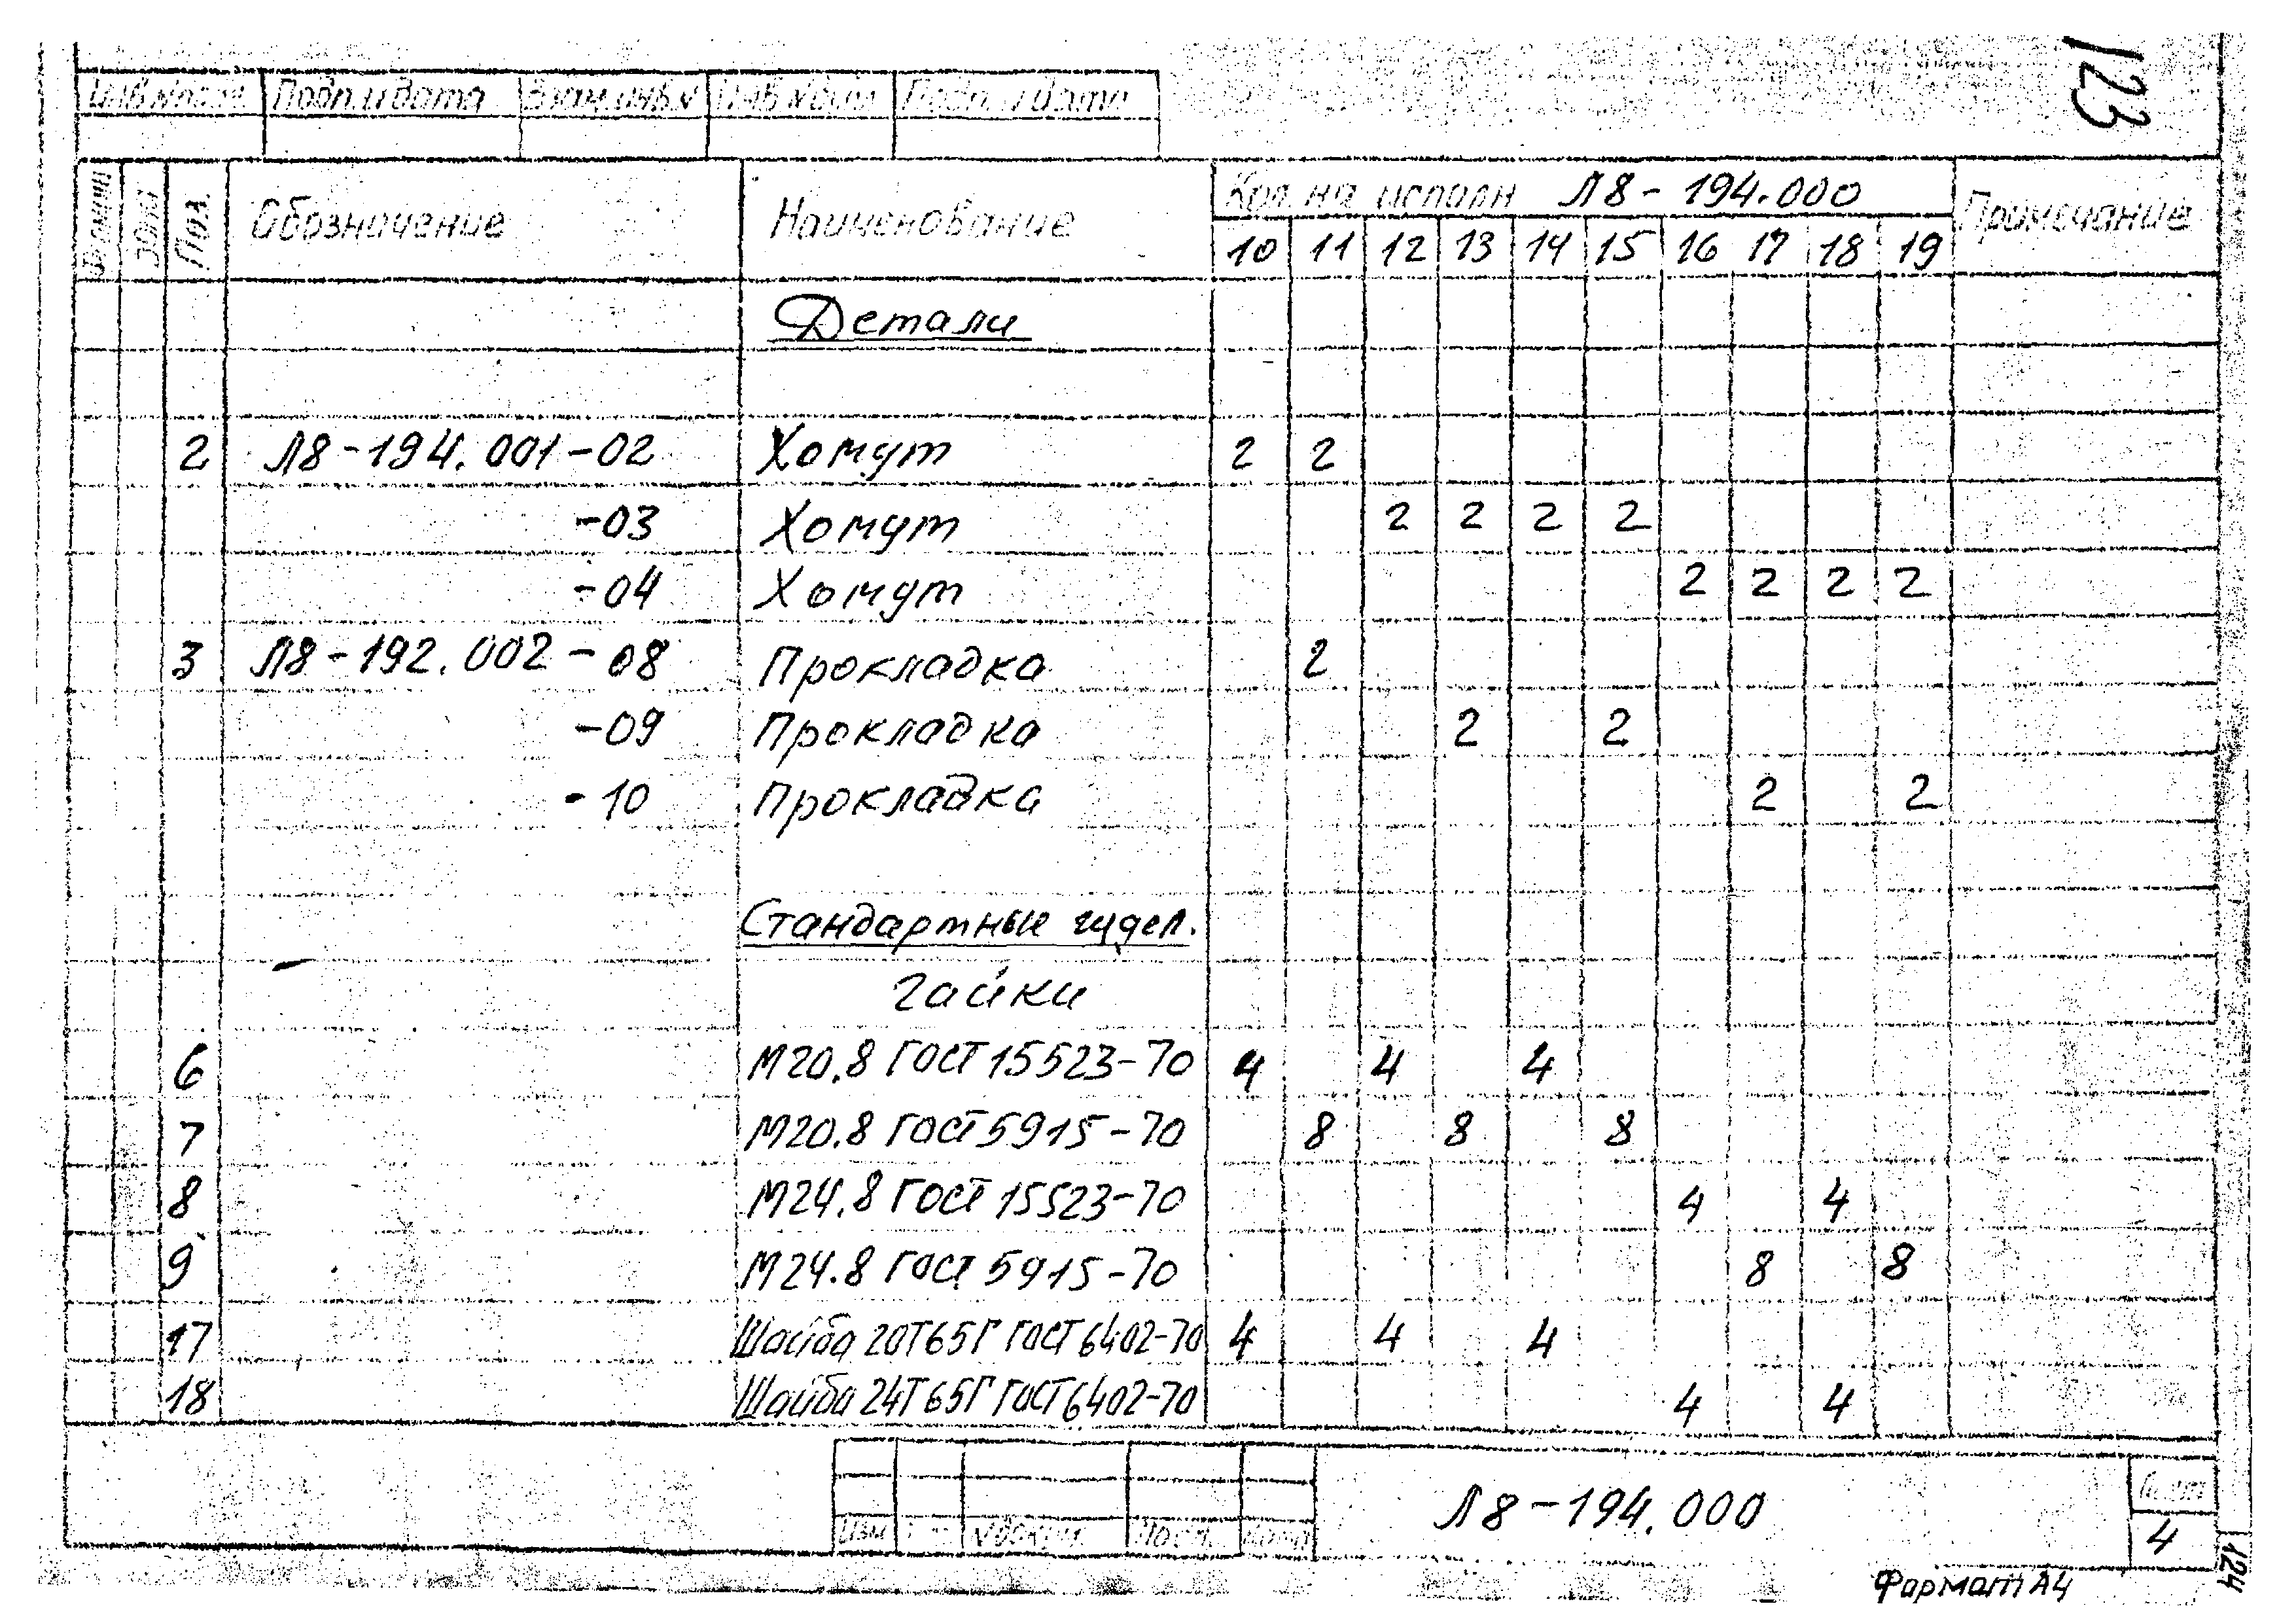 123
Инв.№подл. Подп. и дата Взам.инв.№ Инв.№дубл. Подп. и дата
Формат Зона Поз. Обозначение Наименование Кол. на исполн Л8-194.000 Примечание
10 11 12 13 14 15 16 17 18 19
Детали
2 Л8-194.001-02 Хомут 2 2
-03 Хомут 2 2 2 2
-04 Хомут 2 2 2 2
3 Л8-192.002-08 Прокладка 2
-09 Прокладка 2 2
-10 Прокладка 2 2
Стандартные издел.
гайки
6 М20.8 ГОСТ 15523-70 4 4 4
7 М20.8 ГОСТ 5915-70 8 8 8
8 М24.8 ГОСТ 15523-70 4 4
9 М24.8 ГОСТ 5915-70 8 8
17 Шайба 20Т65Г ГОСТ 6402-70 4 4 4
18 Шайба 24Т65Г ГОСТ 6402-70 4 4
Л8-194.000
Лист
4
Изм № докум. Подп. Дата
Формат А4
124